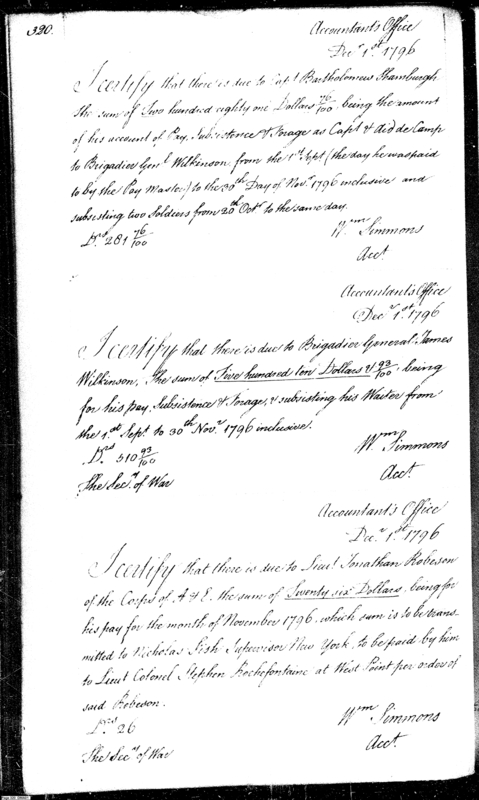 320.
Accountant's Office
Decr 1st 1796
I certify that there is due to Capt Bartholomew Shamburgh
The sum of Two hundred eighty one Dollars 76/100 being the amount
of his account of Pay, Subsistence & Forage as Capt & Aid de Camp
to Brigadier Genl Wilkinson from the 1st Sept (the day he was paid
to by the Pay Master) to the 30th Day of Novr 1796 inclusive and
subsisting two Soldiers from 20th Octr to the same day.
Drs 281 76/100
Wm Simmons
Acct.
Accountant's Office
Decr 1st 1796
I certify that there is due to Brigadier General James
Wilkinson, The sum of Five hundred ten Dollars & 93/100 being
for his pay, Subsistence & Forage, & subsisting his Waiter from
the 1st Sept. to 30th Novr 1796 inclusive.
Drs 510 93/100
Wm Simmons
Acct.
The Secy of War
Accountant's Office
Decr 1st 1796
I certify that there is due to Lieut Jonathan Robeson
of the Corps of A & E. the sum of Twenty six Dollars, being for
his pay for the month of November 1796, which sum is to be trans
mitted to Nicholas Fish Supervisor New York, to be paid by him
to Lieut Colonel Stephen Rochefontaine at West Point per order of
said Robeson.
Drs 26
Wm Simmons
Acct.
The Secy of War